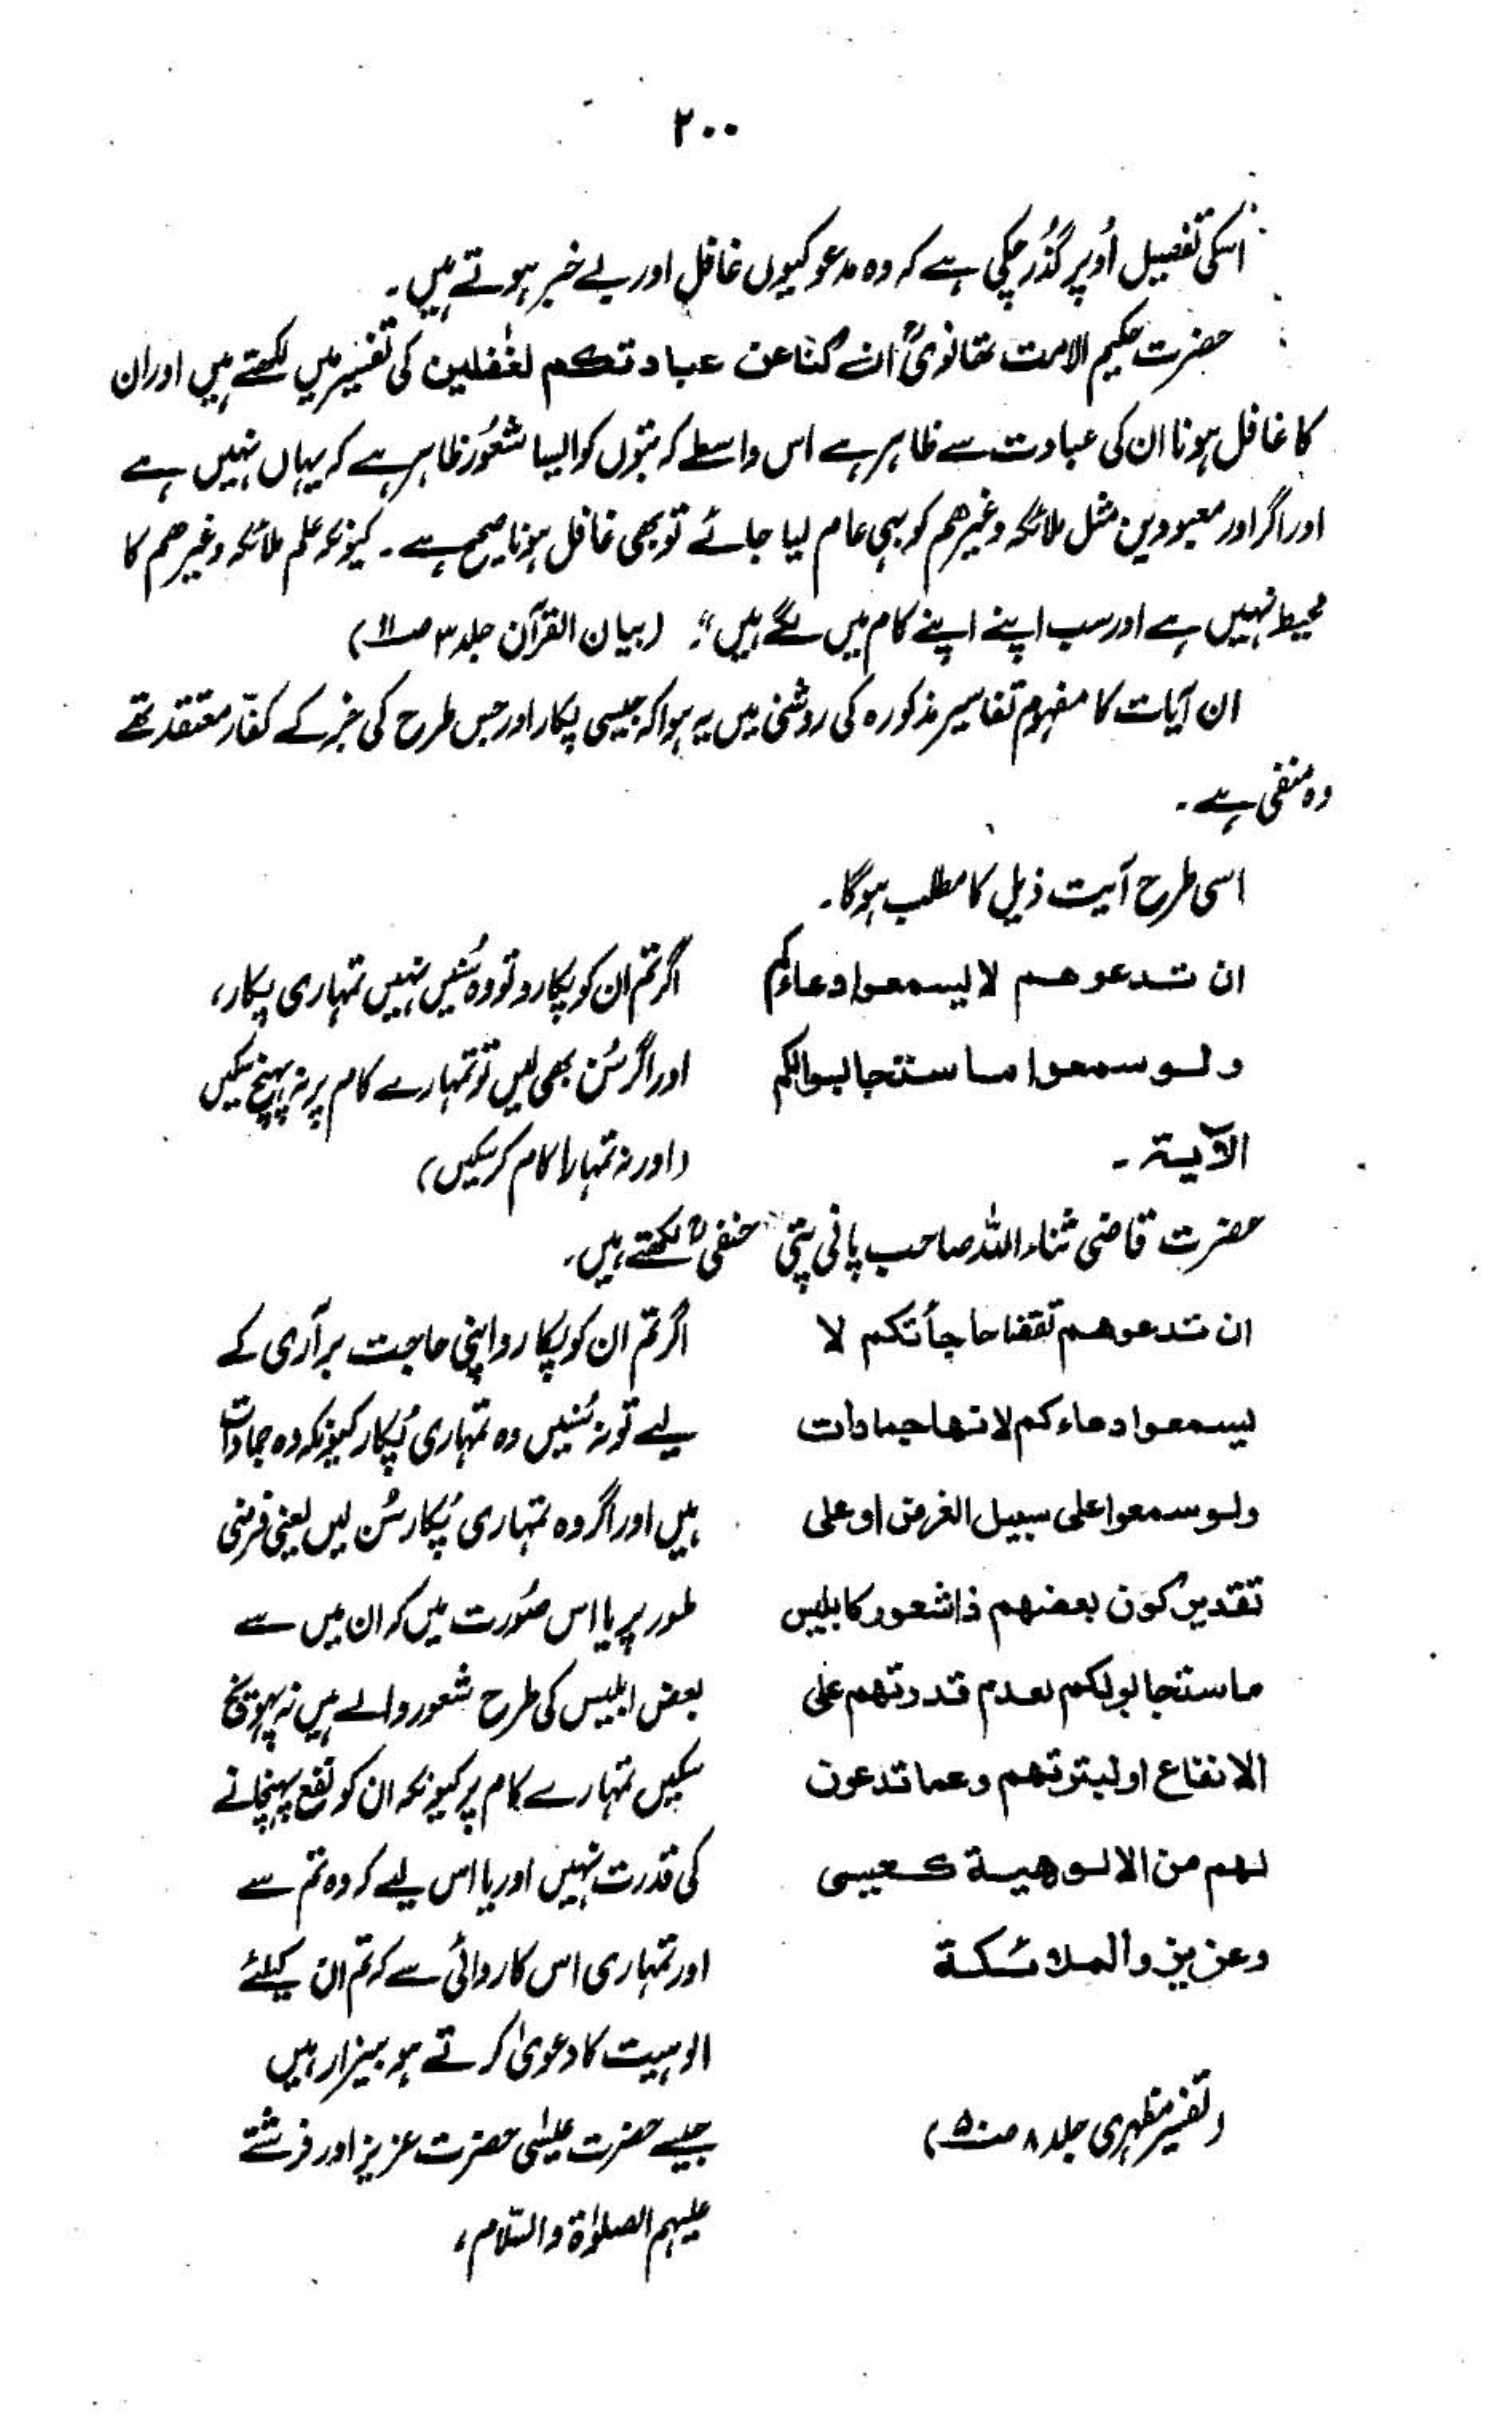 ۲۰۰
اسکی تفصیل اُوپر گذُر چکی ہے کہ وہ مدعو کیوں غافل اور بے خبر ہوتے ہیں۔
حضرت حکیم الامت تھانویؒ ان کنا عن عبادتکم لغٰفلین کی تفسیر میں لکھتے ہیں اور ان
کا غافل ہونا ان کی عبادت سے ظاہر ہے اس واسطے کہ بتوں کو ایسا شعُور ظاہر ہے کہ یہاں نہیں ہے
اور اگر اور معبودین مثل ملائکہ وغیرھم کو بہی عام لیا جائے تو بھی غافل ہونا صحیح ہے۔ کیونکہ علم ملائکہ وغیرھم کا
محیط نہیں ہے اور سب اپنے اپنے کام میں لگے ہیں"۔ (بیان القرآن جلد ۳ صـ۱۱)
ان آیات کا مفہوم تفاسیر مذکورہ کی روشنی میں یہ ہوا کہ جیسی پکار اور جس طرح کی خبر کے کفّار معتقد تھے
وہ منفی ہے۔
اسی طرح آیت ذیل کا مطلب ہوگا۔
ان تدعوھم لا یسمعوا دعاءکم
ولو سمعوا ما ستجابوا لکم
الآیۃ۔
اگر تم ان کو پکارو تو وہ سُنیں نہیں تمہاری پکار،
اور اگر سُن بھی لیں تو تمہارے کام پر نہ پہنچ سکیں
(اور نہ تمہارا کام کر سکیں)
حضرت قاضی ثناء اللہ صاحب پانی پتی حنفیؒ لکھتے ہیں۔
ان تدعوھم تقضا حاجأتکم لا
یسمعوا دعاءکم لانھا جمادات
ولو سمعوا علی سبیل الفرض او علی
تقدیر کون بعضھم ذا شعور کابلیس
ما ستجابو لکم لعدم قدرتھم علی
الانفاع او لبتر‌ئھم و عما تدعون
لھم من الالوھیۃ کعیسی
وعزیز والملائکۃ
(تفسیر مظہری جلد ۸ صـ۵۰)
اگر تم ان کو پکارو اپنی حاجت برآری کے
لیے تو نہ سُنیں وہ تمہاری پُکار کیونکہ وہ جمادات
ہیں اور اگر وہ تمہاری پُکار سُن لیں یعنی فرضی
طور پر یا اس صوُرت میں کہ ان میں سے
بعض ابلیس کی طرح شعور والے ہیں نہ پہونچ
سکیں تمہارے کام پر کیونکہ ان کو نفع پہنچانے
کی قدرت نہیں اور یا اس لیے کہ وہ تم سے
اور تمہاری اس کاروائی سے کہ تم ان کیلئے
الوہیت کا دعویٰ کرتے ہو بیزار ہیں
جیسے حضرت عیسٰی حضرت عزیز اور فرشتے
علیہم الصلوٰۃ والسّلام،